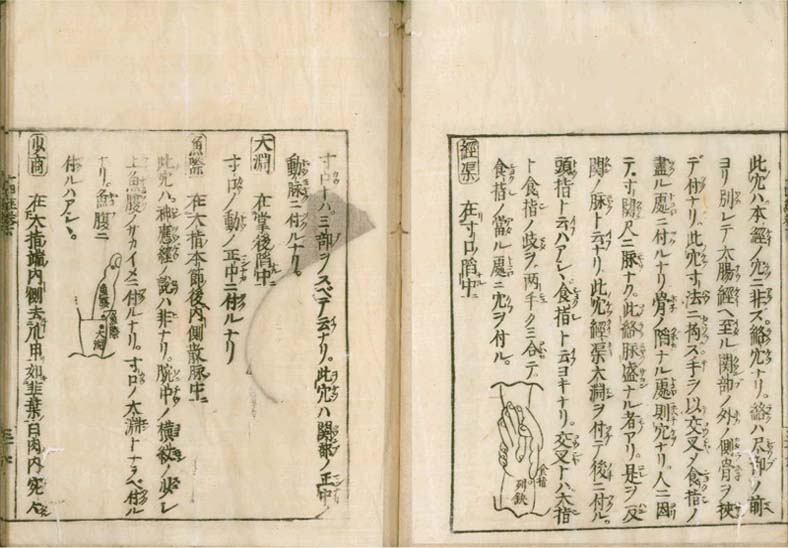 此穴ハ本經ノ穴ニ非ス。絡穴ナリ。絡ハ尺部ノ前
ヨリ別レテ大腸經ヘ至ル關部ノ外ノ側骨ヲ挾
デ付ナリ。此穴寸法ニ拘ス手ヲ以交叉メ食指ノ
盡ル處ニ付ルナリ骨ノ陷ナル處則穴ナリ。人ニ因
テ寸關尺ニ脉ナク。此絡脉盛ナル者アリ。是ヲ反
關ノ脉ト云ナリ。此穴經渠大淵ヲ付テ後ニ付ル。
頭指ト云ハアシヽ食指ト云ヨキナリ。交叉トハ大指
ト食指ノ歧ヲ両手ク三合テ
食指ノ當ル處ニ穴ヲ付ル。
食指
列缺
經渠 在寸口陷中
寸口トハ三部ヲスベテ云ナリ。此穴ハ關部ノ正中ノ
動脉ニ付ルナリ。
大淵 在掌後陷中
寸口ノ動ノ正中ニ付ルナリ
魚際 在大指本節後内側散脉中
此穴ハ。神應經ノ說ハ非ナリ。腕中ノ橫紋ノ少シ
上魚腹ノサカイメニ付ルナリ。寸口ノ太淵トナラベ付ル
ナリ。魚腹ニ
付ルハアシヽ。
魚際
大淵
少商 在大指端内側去爪甲如韭葉白肉内宛々